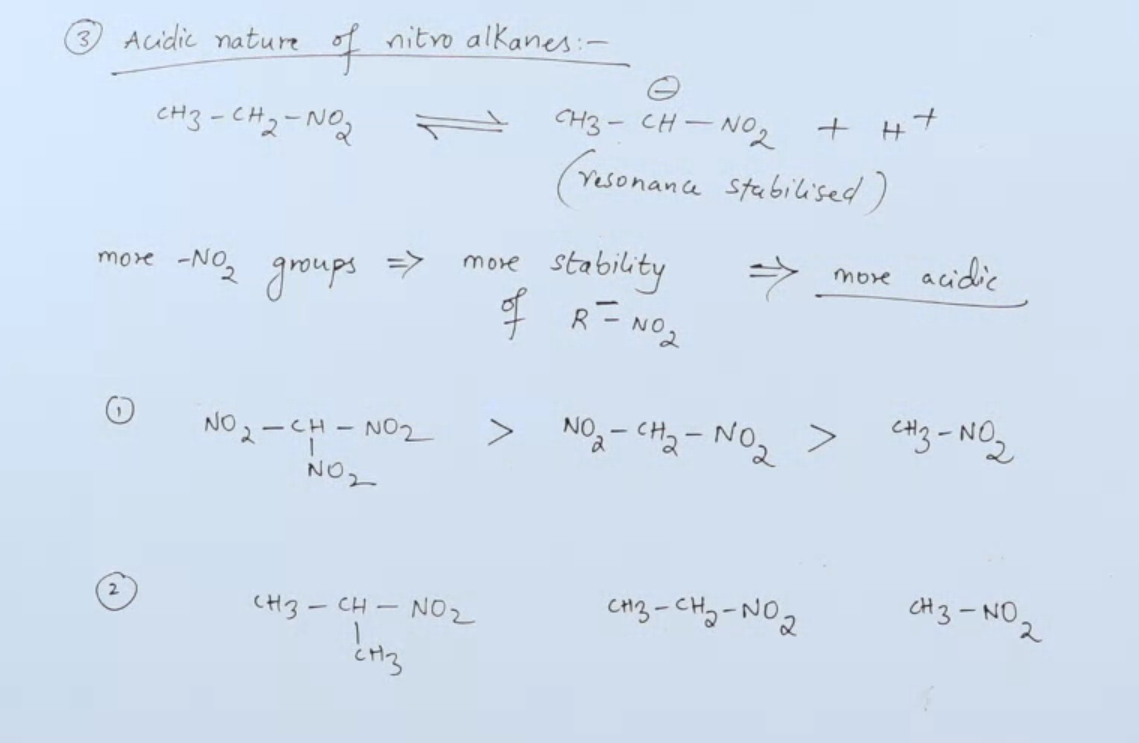 ③ Acidic nature of nitro alkanes:-
⊖
CH3 - CH2 - NO2 ⇌ CH3 - CH - NO2 + H+
(resonance stabilised)
more -NO2 groups ⇒ more stability ⇒ more acidic
of R̄ - NO2
① NO2 - CH - NO2 > NO2 - CH2 - NO2 > CH3 - NO2
NO2
② CH3 - CH - NO2 CH3 - CH2 - NO2 CH3 - NO2
CH3